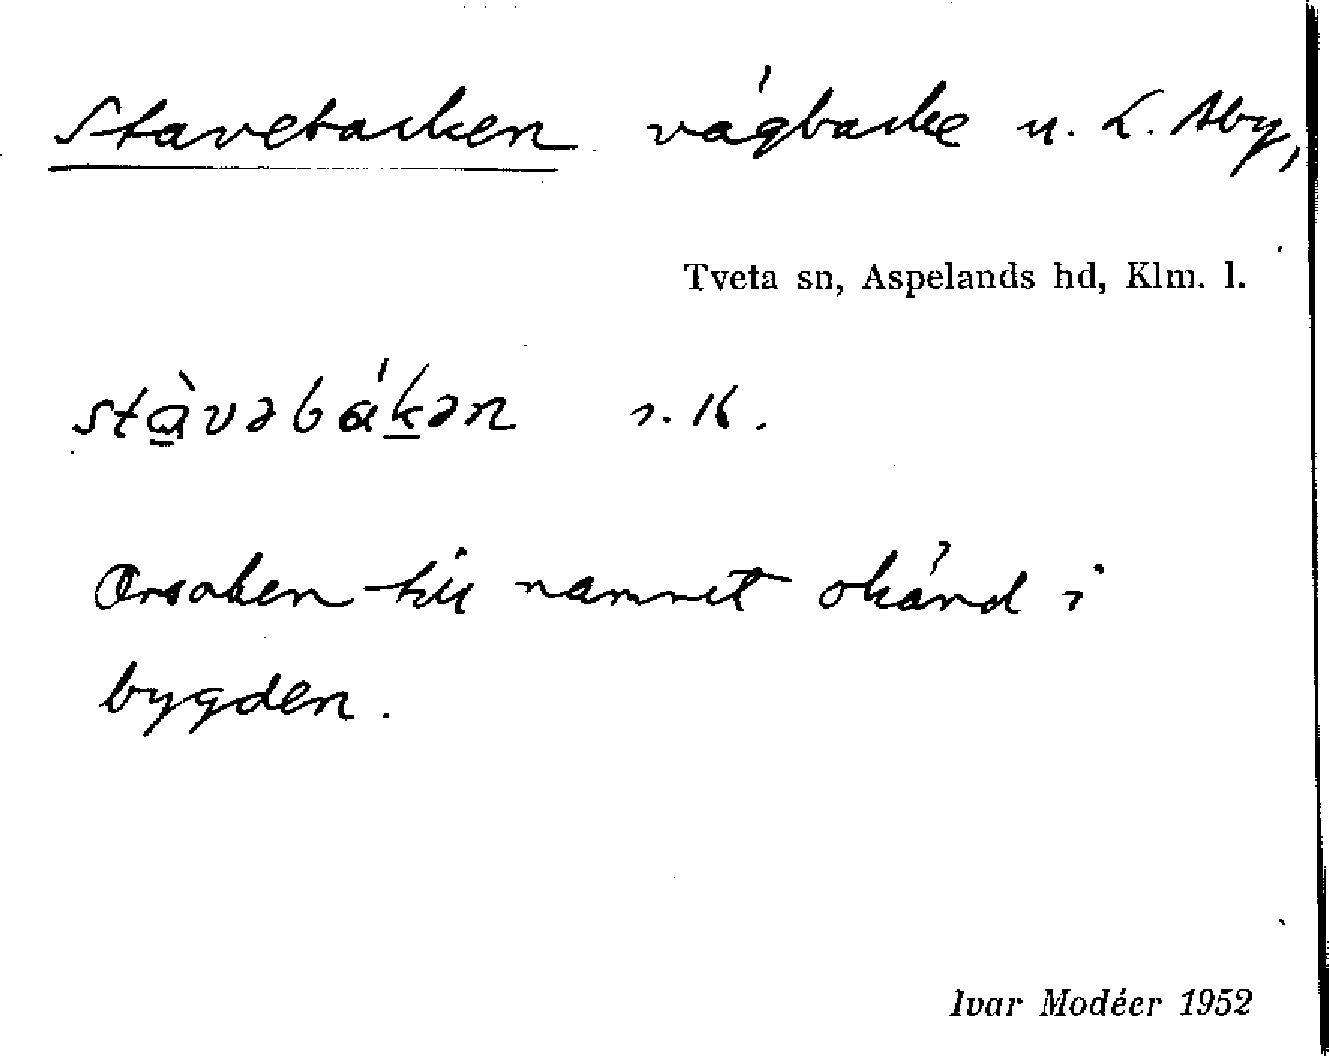 Stavebacken vägbacke u. L. Åby,
Tveta sn, Aspelands hd, Klm. l.
stàvəbákən s. K.
Orsaken till namnet okänd i
bygden.
Ivar Modéer 1952